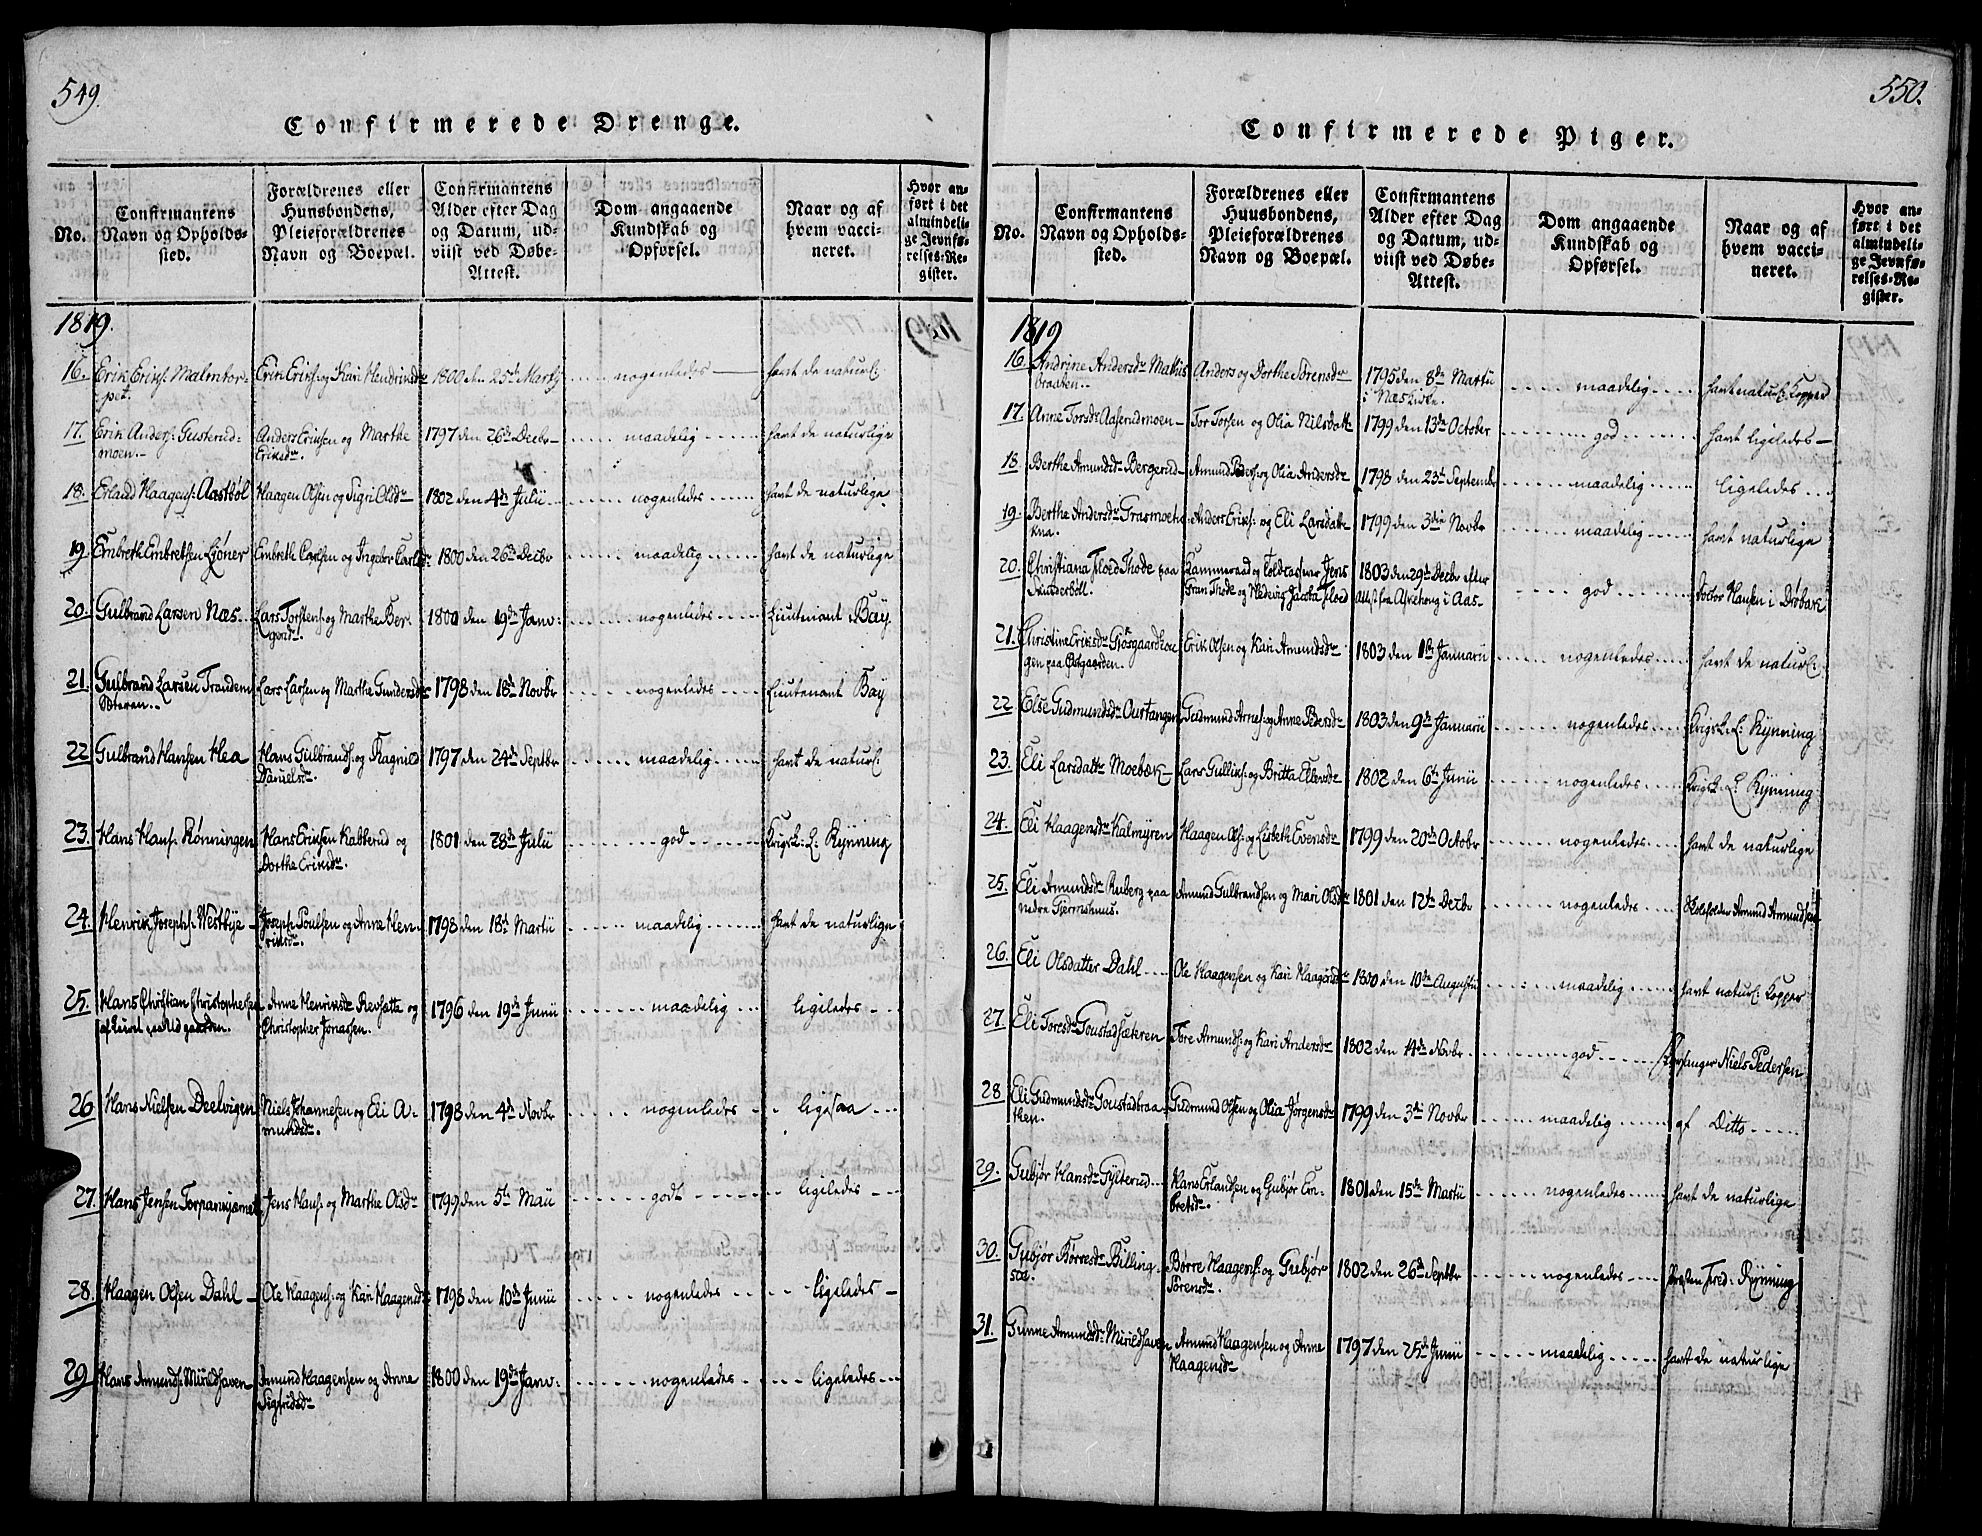 549.
Confirmerede Drenge.
No.
Confirmantens
Navn og Opholds-
sted.
Forældrenes eller
Huusbondens,
Pleieforældrenes
Navn og Boepæl.
Confirmantens
Alder efter Dag
og Datum, ud-
viist ved Døbe-
Attest.
Dom angaaende
Kundskab og
Opførsel.
Naar og af
hvem vacci-
neret.
Hvor an-
ført i det
almindeli-
ge Jevnfø-
relses-Re-
gister.
1819.
16. Erik Eriks: Malmtor- Erik Eriks: og Kari Hendriksdr 1800 den 25de Martii nogenledes havt de naturl:
pet.
17. Erik Anders: Gusterud- Anders Eriksen og Marthe 1797 den 26de Decbr maadelig havt de naturlige
moen. Eriksdr.
18. Erland Haagens: Aastböl Haagen Olsen og Sigri Olsdr 1802 den 4de Julii nogenledes havt de naturlige
19. Embreth Embretsen Ljöner Embreth Carlsen og Ingebr Carlsdr 1800 den 26de Decbr maadelig havt de naturlige
20. Gulbrand Larsen Næs Lars Torstens: og Marthe Ber- 1800 den 19de Janv: nogenledes Lieutenant Bay
gersdr.
21. Gulbrand Larsen Trandem Lars Larsen og Marthe Gundersdr 1798 den 18de Novbr nogenledes Lieutenant Bay
Sæteren.
22 Gulbrand Hansen Hea Hans Gulbrands: og Ragnild 1797 den 24de Septbr maadelig havt de naturl:
Danielsdr.
23. Hans Hans: Rønningen Hans Eriksen Kabberud og 1801 den 28de Julii god Krigsk: L: Rynning
Dorthe Eriksdr.
24. Henrik Joseph: Westbye Joseph Poulsen og Anne Hen- 1798 den 18de Martii maadelig havt de naturlige
riksdr.
25. Hans Christian Christophersen Anne Henriksdr Revsætte og 1796 den 19de Junii maadelig ligeledes
Christopher Jonassen.
26 Hans Nielsen Deelvigen Niels Johannesen og Eli A- 1798 den 4de Novbr nogenledes ligesaa
mundsdr.
27. Hans Jensen Torpamyrmet Jens Hans: og Marthe Olsdr 1799 den 5te Maii godt ligeledes
28. Haagen Olsen Dahl Ole Haagens: og Kari Haagensdr 1798 den 10de Junii nogenledes ligeledes
29 Hans Amunds: Mirildhaven Amund Haagensen og Anne 1800 den 19de Janv: nogenledes ligeledes
Sigfridsdr
550.
Confirmerede Piger.
No.
Confirmantens
Navn og Opholds-
sted.
Forældrenes eller
Huusbondens,
Pleieforældrenes
Navn og Boepæl.
Confirmantens
Alder efter Dag
og Datum, ud-
viist ved Døbe-
Attest.
Dom angaaende
Kundskab og
Opførsel.
Naar og af
hvem vacci-
neret.
Hvor an-
ført i det
almindeli-
ge Jevnfø-
relses-Re-
gister.
1819
16. Andrine Andersdr Mathis Anders og Dorthe Sörensdr 1795 den 8de Martii maadelig havt naturl: Kopper
braaten.
17. Anne Torsdr Aaserudmoen Tor Torsen og Olia Nilsdatt 1799 den 13de October god havt ligeledes
18. Berthe Amundsdr Bergerud Amund Peders: og Olia Andersdr 1798 den 23de Septembr maadelig ligeledes
19. Berthe Andersdr Grasmoeh Anders Eriks: og Eli Larsdatt 1799 den 3die Novbr maadelig havt naturlige
20. Christiana Floed Thode paa Kammeraad og Toldcasserer Jens 1803 den 29de Decbr efter god Doctor Hansen i Dröbak
Skinderböll. Gran Thode og Hedevig Jacoba Floed
21. Christine Eriksdr Gjösgaardhou Erik Olsen og Kari Amundsdr 1803 den 1te Januarii nogenledes havt de naturl:
gen paa
22 Else Gudmundsdr Oustangen Gudmund Arnes: og Anne Pedersdr 1803 den 9de Januarii nogenledes Krigsk: L: Rynning
23. Eli Larsdattr Moebæk Lars Gulliks: og Britta Ellevsdr 1802 den 6te Junii nogenledes Krigsk: L: Rynning
24. Eli Haagensdr Kalmyren Haagen Ols: og Lisbeth Evensdr 1799 den 20de Octobr nogenledes havt de naturlige
25. Eli Amundsdr Ruberg paa Amund Gulbrandsen og Mari Olsdr 1801 den 12te Decbr nogenledes Skoleholder Amund Amundsen
nedre Gjermshuus.
26. Eli Olsdatter Dahl Ole Haagensen og Kari Haagensdr 1800 den 10de Augusti maadelig havt naturl: Kopper
27. Eli Toresdr Goustadsæteren Tore Amunds: og Kari Andersdr 1802 den 14de Novbr god Niels Pedersen
28. Eli Gudmundsdr Goustadbraa- Gudmund Olsen og Olia Jörgensdr 1799 den 3die Novbr maadelig af Ditto
then.
29. Gubjör Hansdr Gylterud Hans Erlandsen og Gubjör Em- 1801 den 15de Martii nogenledes havt de naturlige
bretsdr.
30. Gubjör Börresdr Billing- Börre Haagens: og Gubjör 1802 den 26de Septbr nogenledes Præsten Fred: Rynning
soe. Sörensdr.
31. Gunne Amundsdr Mirildhaven Amund Haagensen og Anne 1797 den 25de Junii maadelig havt de naturlige
Haagensdr